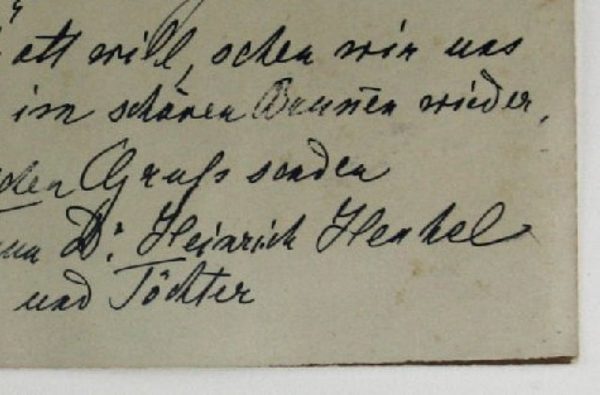 will, sehen wir uns
im schönen Brunnen wieder,
Gruß senden
Dr. Heinrich Henkel
und Töchter